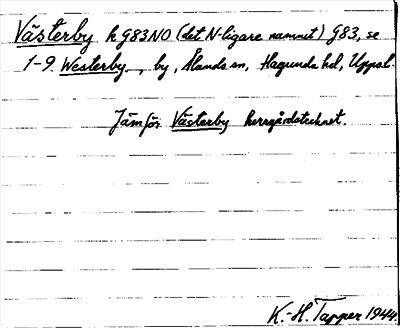 Västerby k G83NO (det N-ligare namnet) G83, se
1-9 Westerby, by, Ålands sn, Hagunda hd, Uppsl.
Jämför Västerby herrgårdstecknet.
K.-H. Tapper 1944.